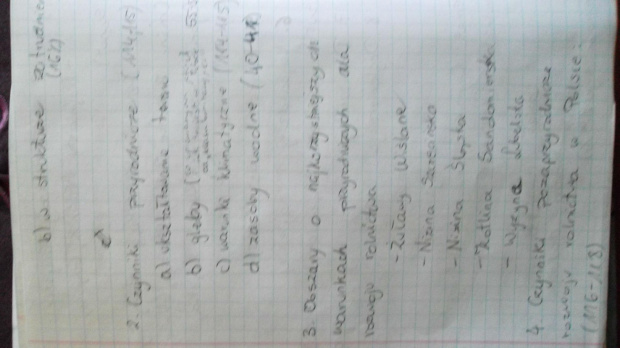 b) w strukturze
(16%)
2. Czynniki przyrodnicze (114,115)
a) ukształtowanie
b) gleby
c) warunki klimatyczne (114-115)
d) zasoby wodne (40-41)
3. Obszary o najkorzystniejszych
warunkach przyrodniczych dla
rozwoju rolnictwa
- Żuławy Wiślane
- Nizina
- Nizina Śląska
- Kotlina Sandomierska
- Wyżyna Lubelska
4. Czynniki pozaprzyrodnicze
rozwoju rolnictwa w Polsce
(116-118)